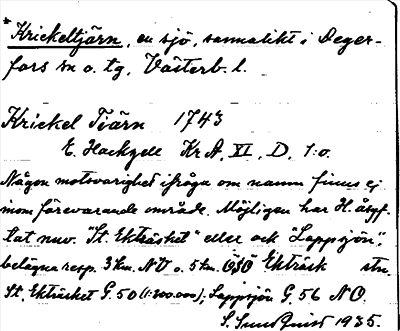 * Krickeltjärn, en sjö, sannolikt i Deger-
fors sn o. tg, Västerb. l.
Krickel Tiärn 1743
E. Hackzell KrA, XI, D, 1:o.
Någon motsvarighet ifråga om namn finns ej
inom förevarande område. Möjligen har H. åsyf-
tat nuv. "St. Ekträsket" eller ock "Lappsjön",
belägna resp. 3 km. NV o. 5 km. ÖSÖ Ekträsk stn.
St. Ekträsket G. 50 (1:200.000); Lappsjön G. 56 NO.
S. Sundquist 1935.